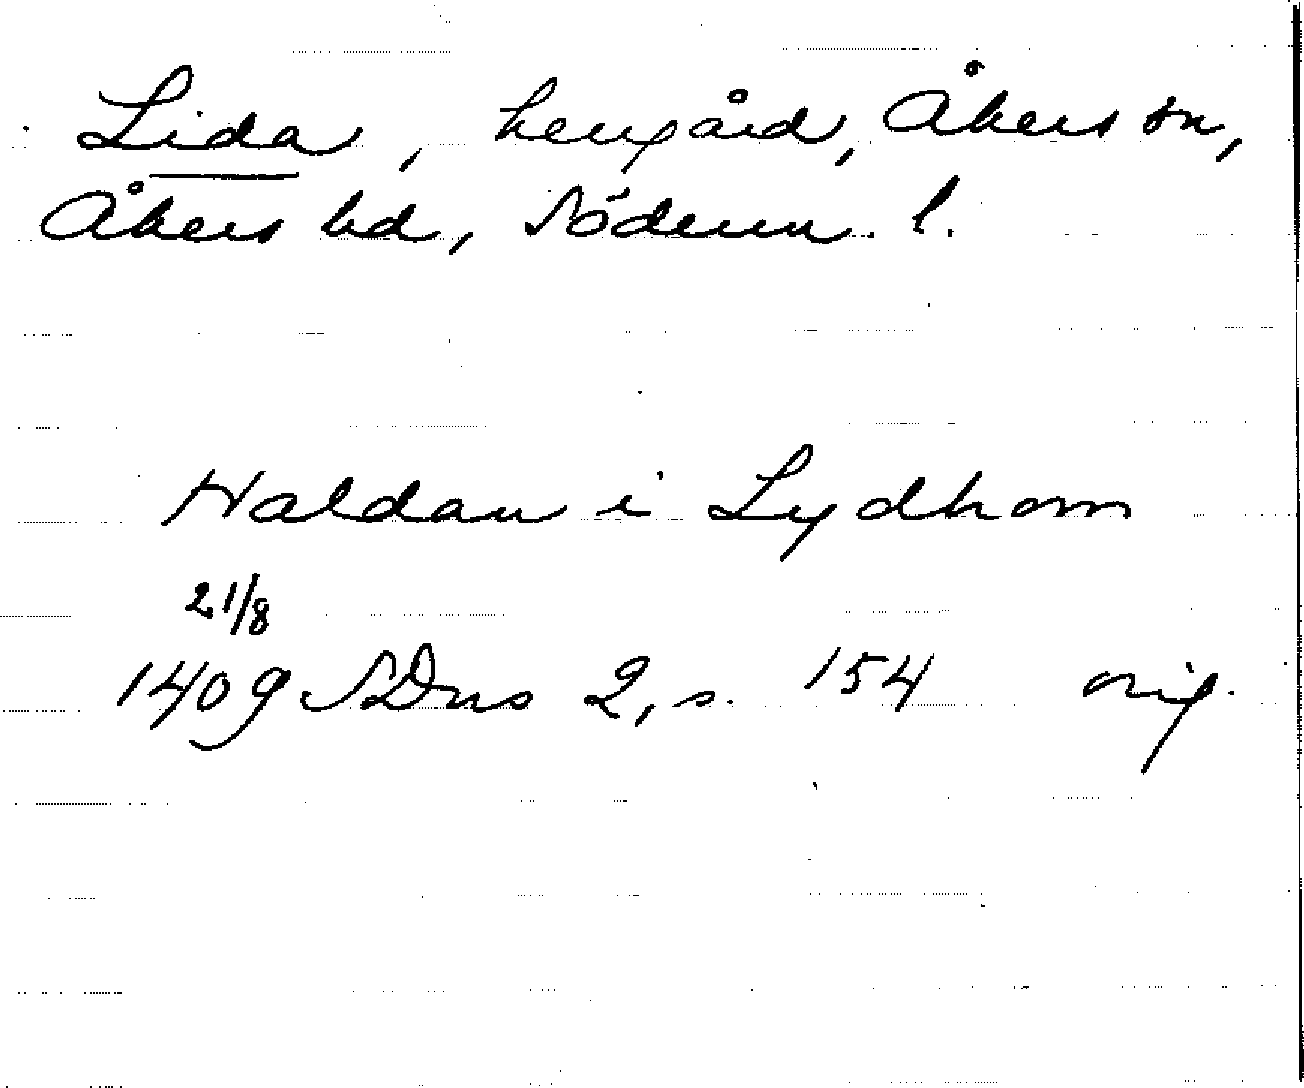 Lida, herrgård, Åkers sn,
Åkers hd, Söderm. l.
Haldan i Lydhom
21/8
1409 SDns 2, s. 154 orig.